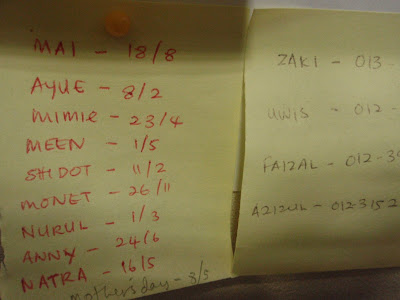 MAI - 18/8
AYUE - 8/2
MIMIE - 23/4
MEEN - 1/5
SHIDOT - 11/2
MONET - 26/11
NURUL - 1/3
ANNY - 24/6
NATRA - 16/5
Mother's day - 8/5
ZAKI - 013 -
UWIS - 012 -
FAIZAL - 012-39
AZIZUL - 012-3152